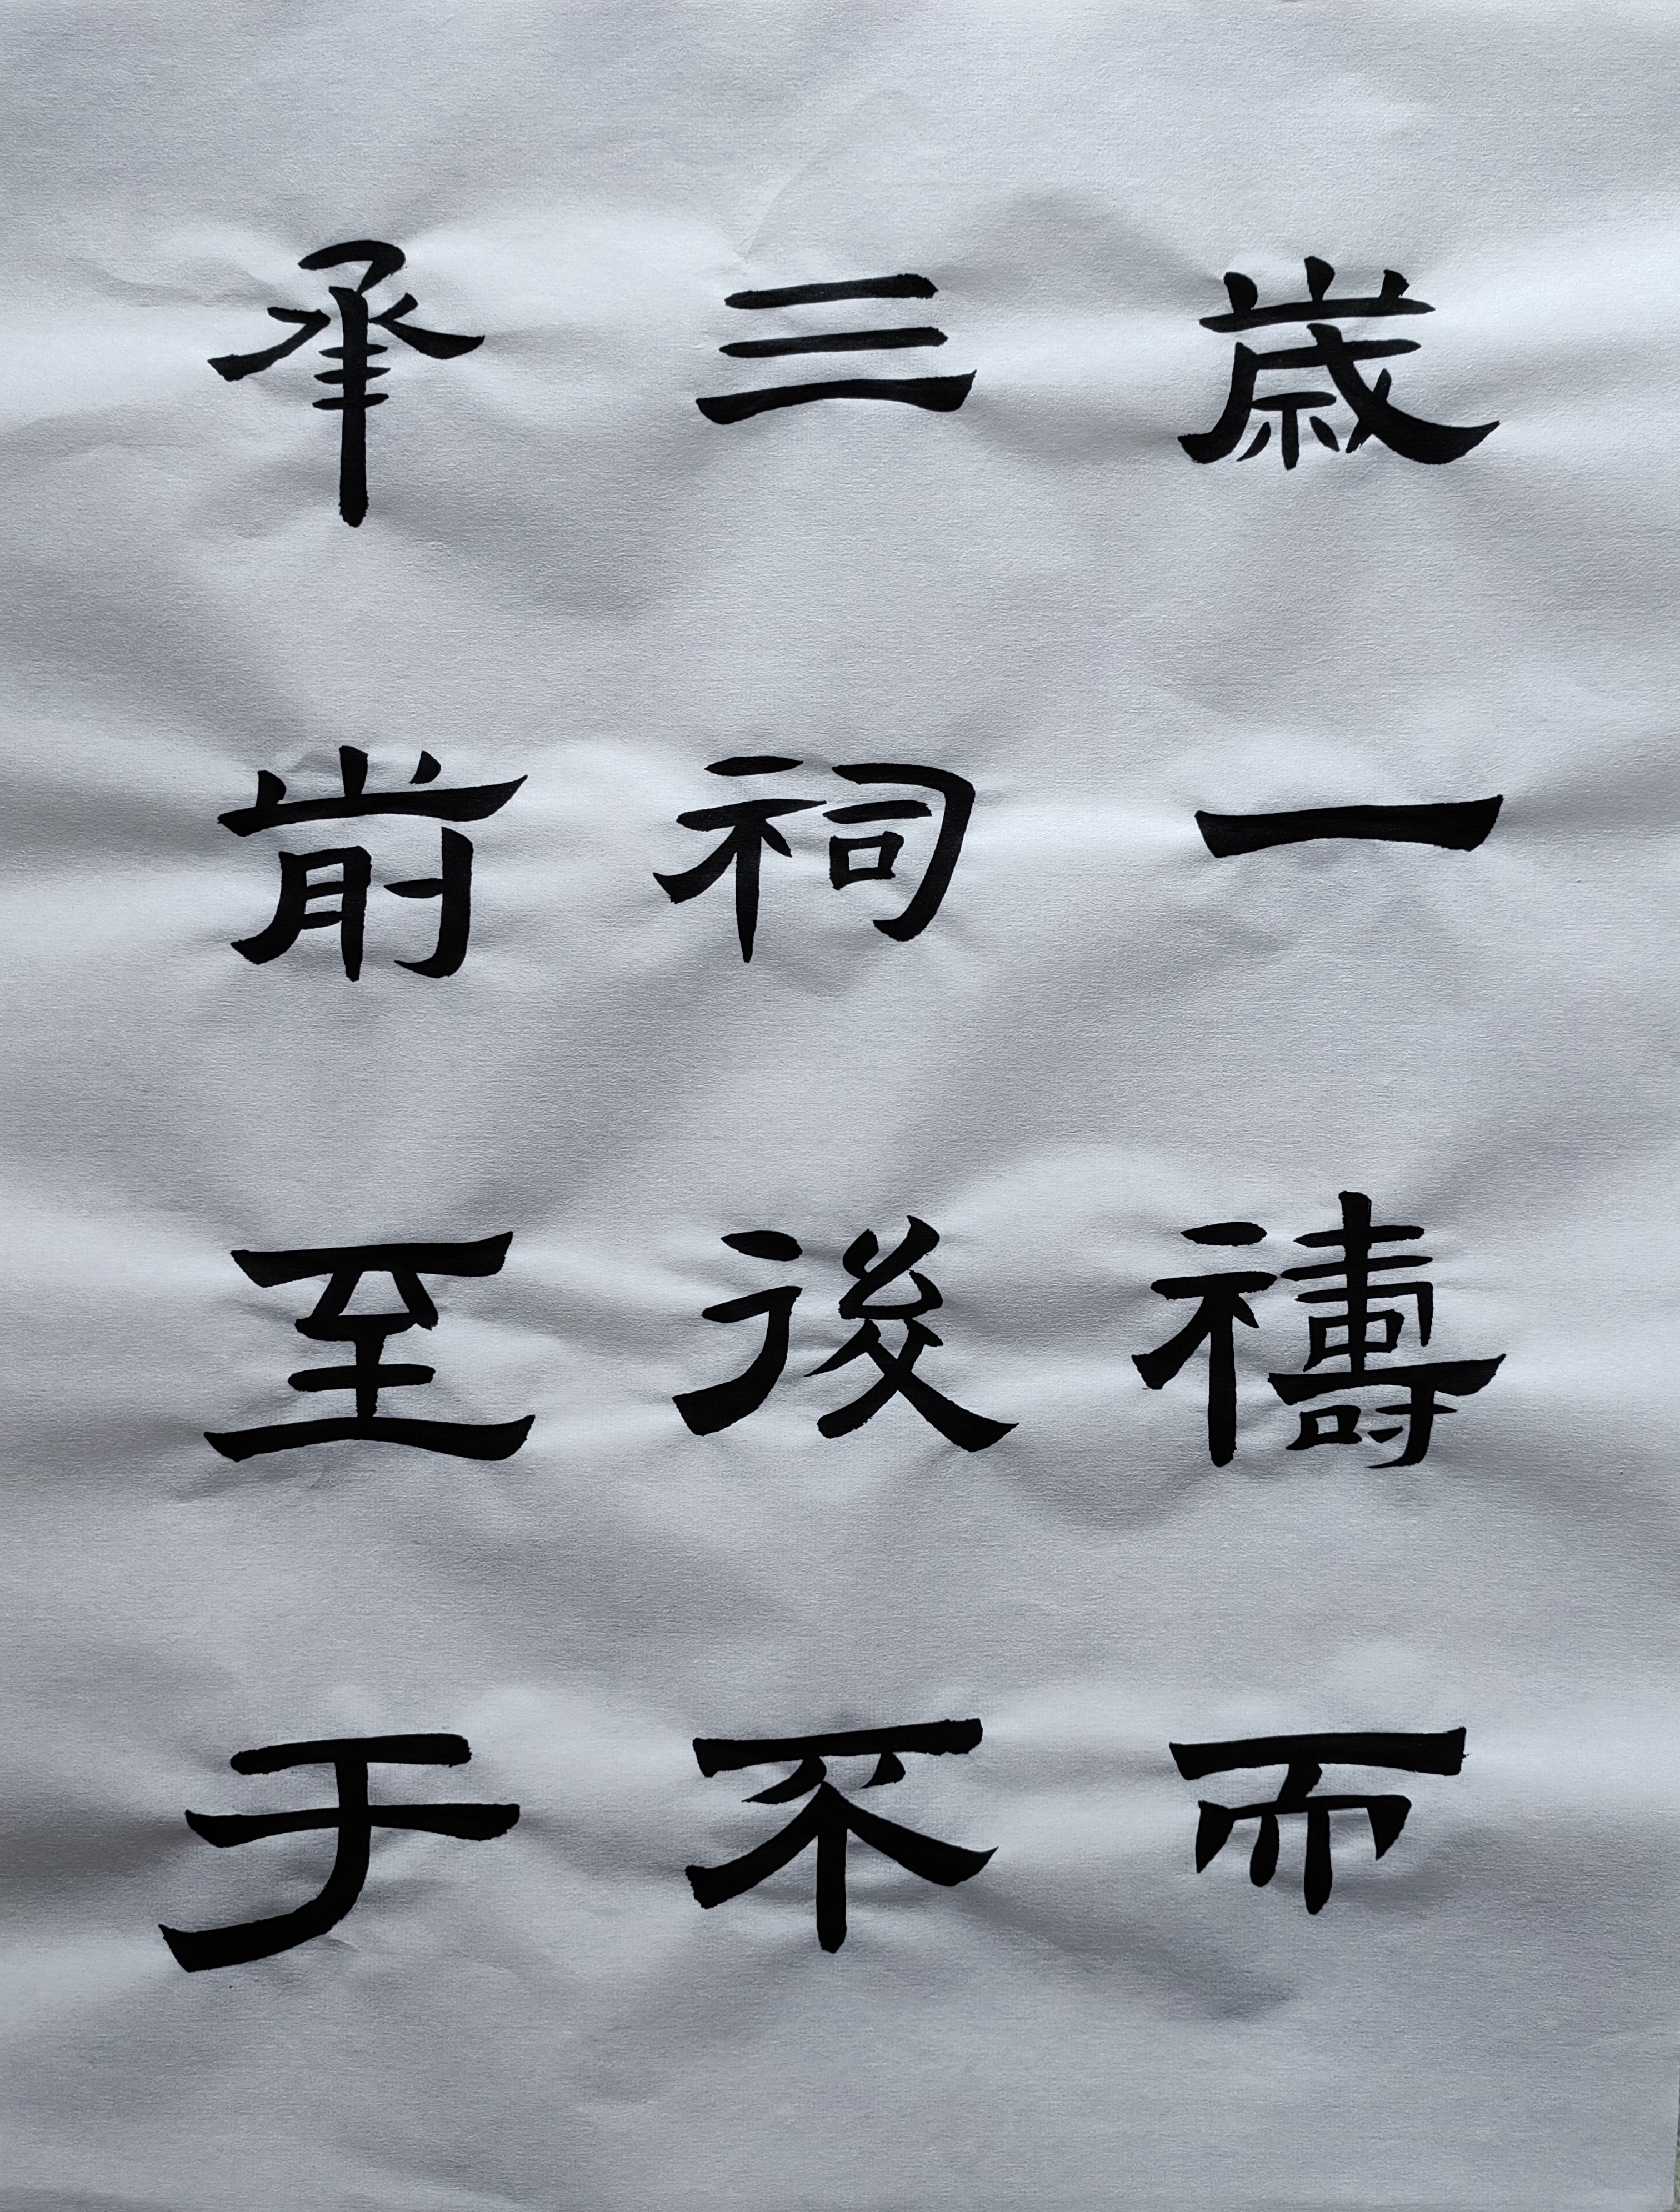 歳一禱而
三祠後不
承前至于